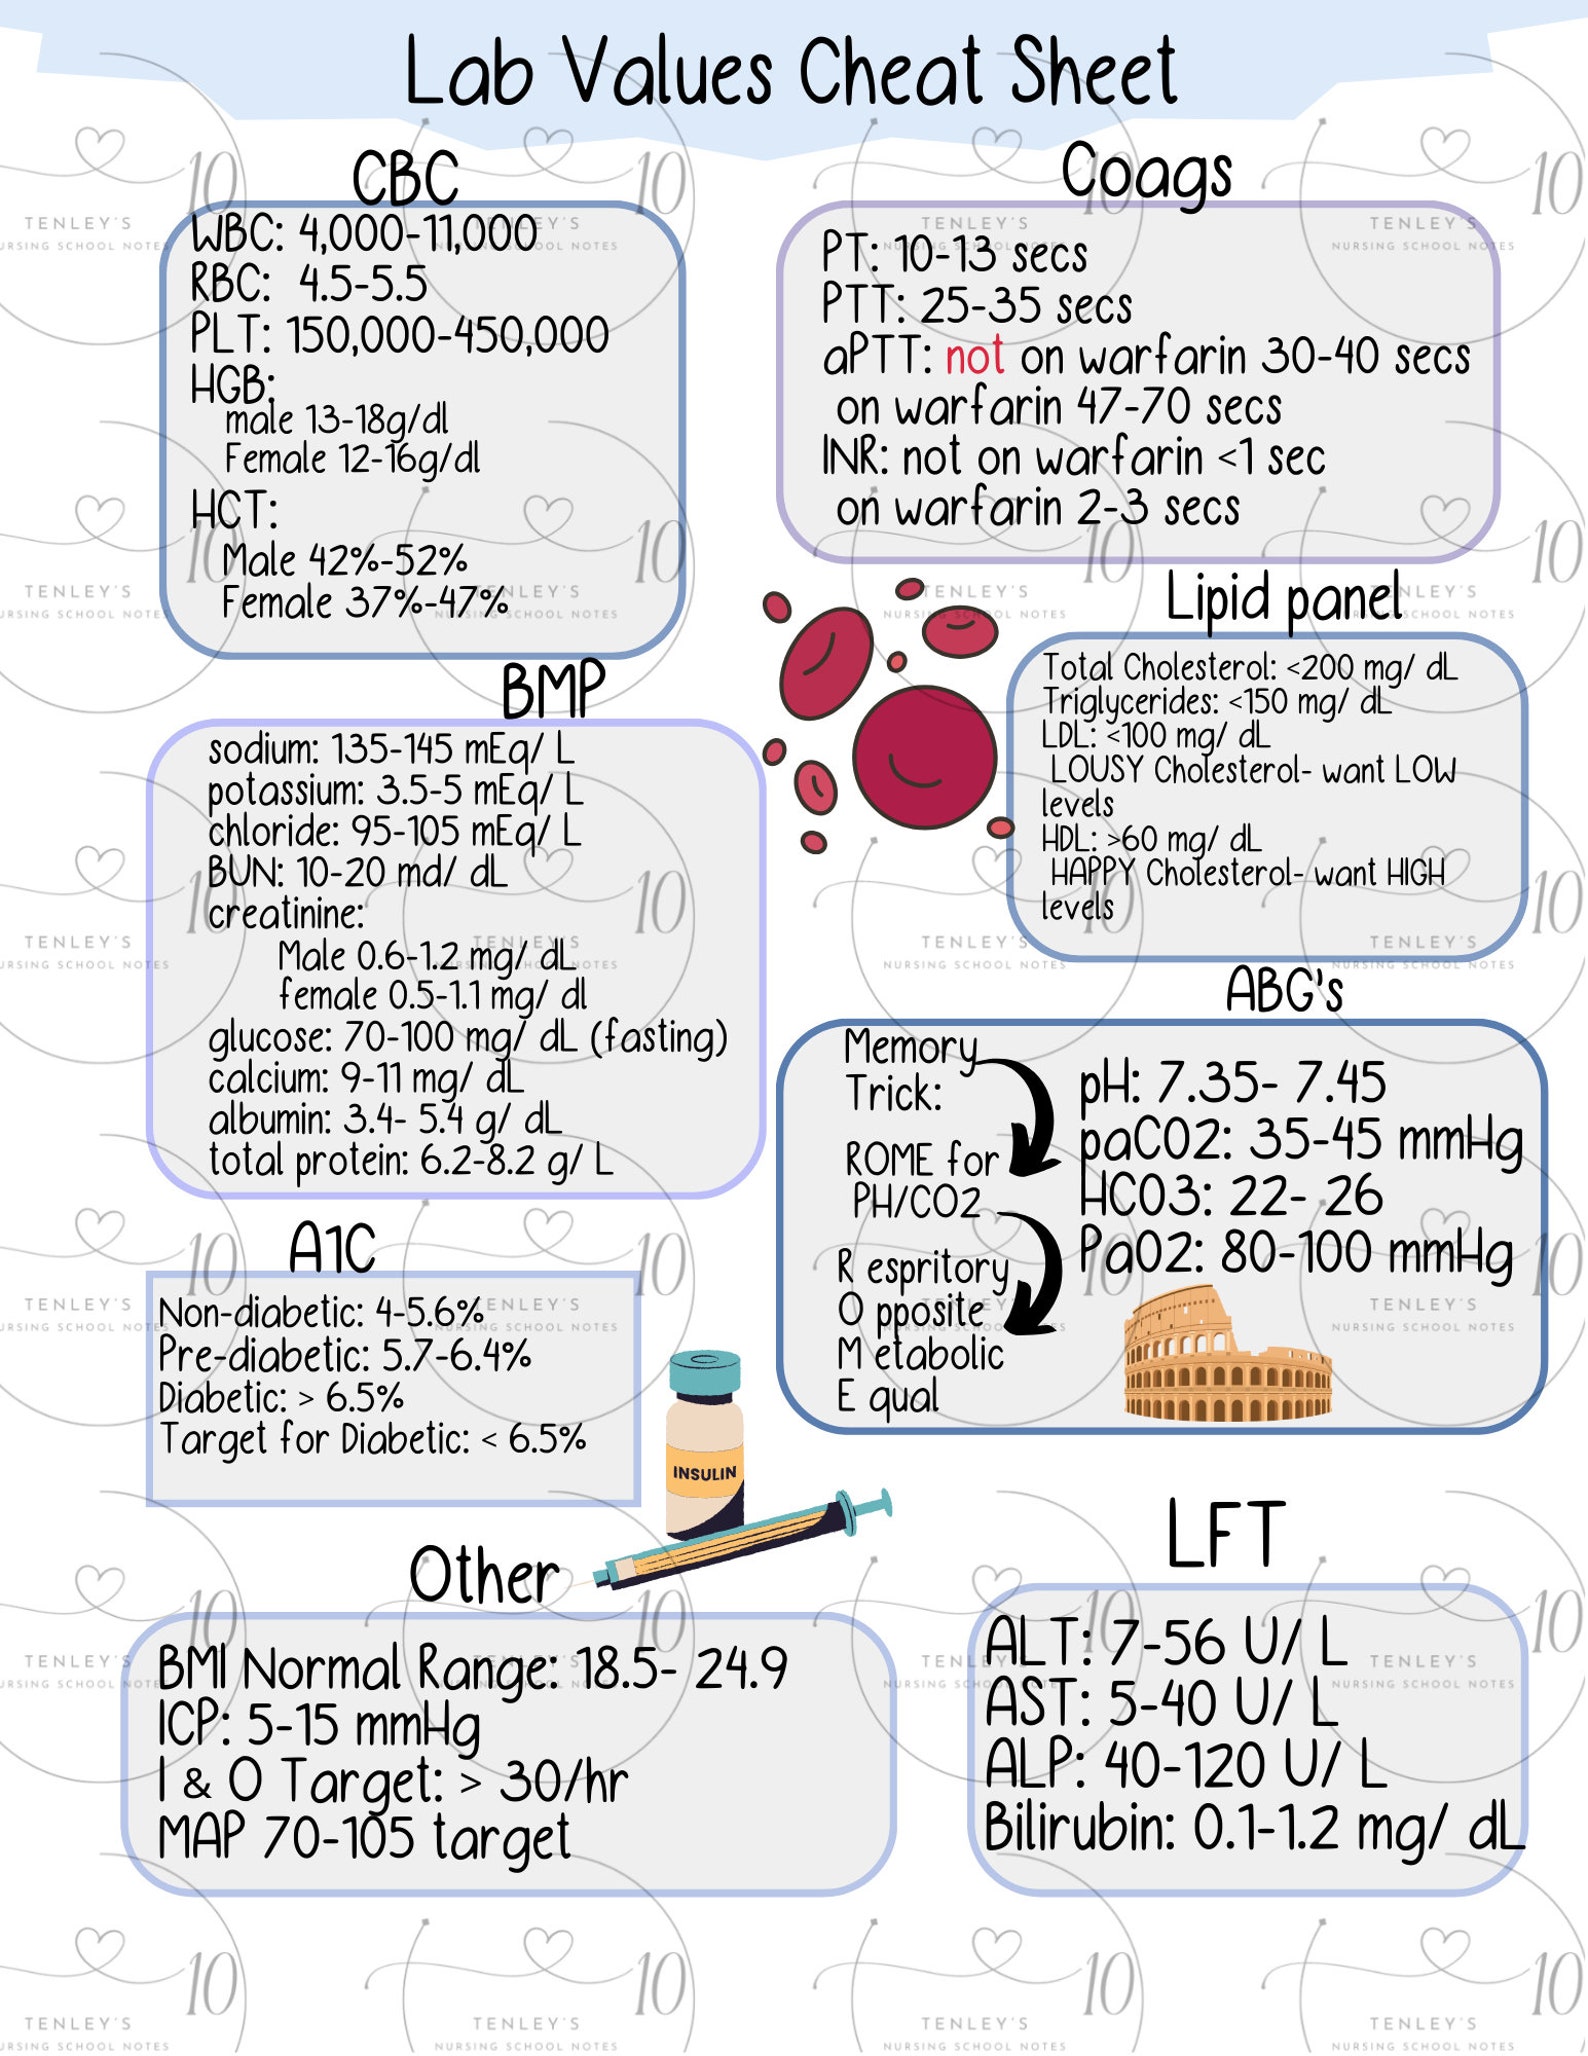 Lab Values Cheat Sheet
CBC
WBC: 4,000-11,000
RBC: 4.5-5.5
PLT: 150,000-450,000
HGB:
male 13-18g/dl
Female 12-16g/dl
HCT:
Male 42%-52%
Female 37%-47%
Coags
PT: 10-13 secs
PTT: 25-35 secs
aPTT: not on warfarin 30-40 secs
on warfarin 47-70 secs
INR: not on warfarin <1 sec
on warfarin 2-3 secs
Lipid panel
Total Cholesterol: <200 mg/ dL
Triglycerides: <150 mg/ dL
LDL: <100 mg/ dL
LOUSY Cholesterol- want LOW
levels
HDL: >60 mg/ dL
HAPPY Cholesterol- want HIGH
levels
BMP
sodium: 135-145 mEq/ L
potassium: 3.5-5 mEq/ L
chloride: 95-105 mEq/ L
BUN: 10-20 md/ dL
creatinine:
Male 0.6-1.2 mg/ dL
female 0.5-1.1 mg/ dl
glucose: 70-100 mg/ dL (fasting)
calcium: 9-11 mg/ dL
albumin: 3.4- 5.4 g/ dL
total protein: 6.2-8.2 g/ L
ABG's
Memory
Trick:
ROME for
PH/CO2
R espritory
O pposite
M etabolic
E qual
pH: 7.35- 7.45
paCO2: 35-45 mmHg
HCO3: 22- 26
PaO2: 80-100 mmHg
A1C
Non-diabetic: 4-5.6%
Pre-diabetic: 5.7-6.4%
Diabetic: > 6.5%
Target for Diabetic: < 6.5%
INSULIN
Other
BMI Normal Range: 18.5- 24.9
ICP: 5-15 mmHg
I & O Target: > 30/hr
MAP 70-105 target
LFT
ALT: 7-56 U/ L
AST: 5-40 U/ L
ALP: 40-120 U/ L
Bilirubin: 0.1-1.2 mg/ dL
10
TENLEY'S
NURSING SCHOOL NOTES